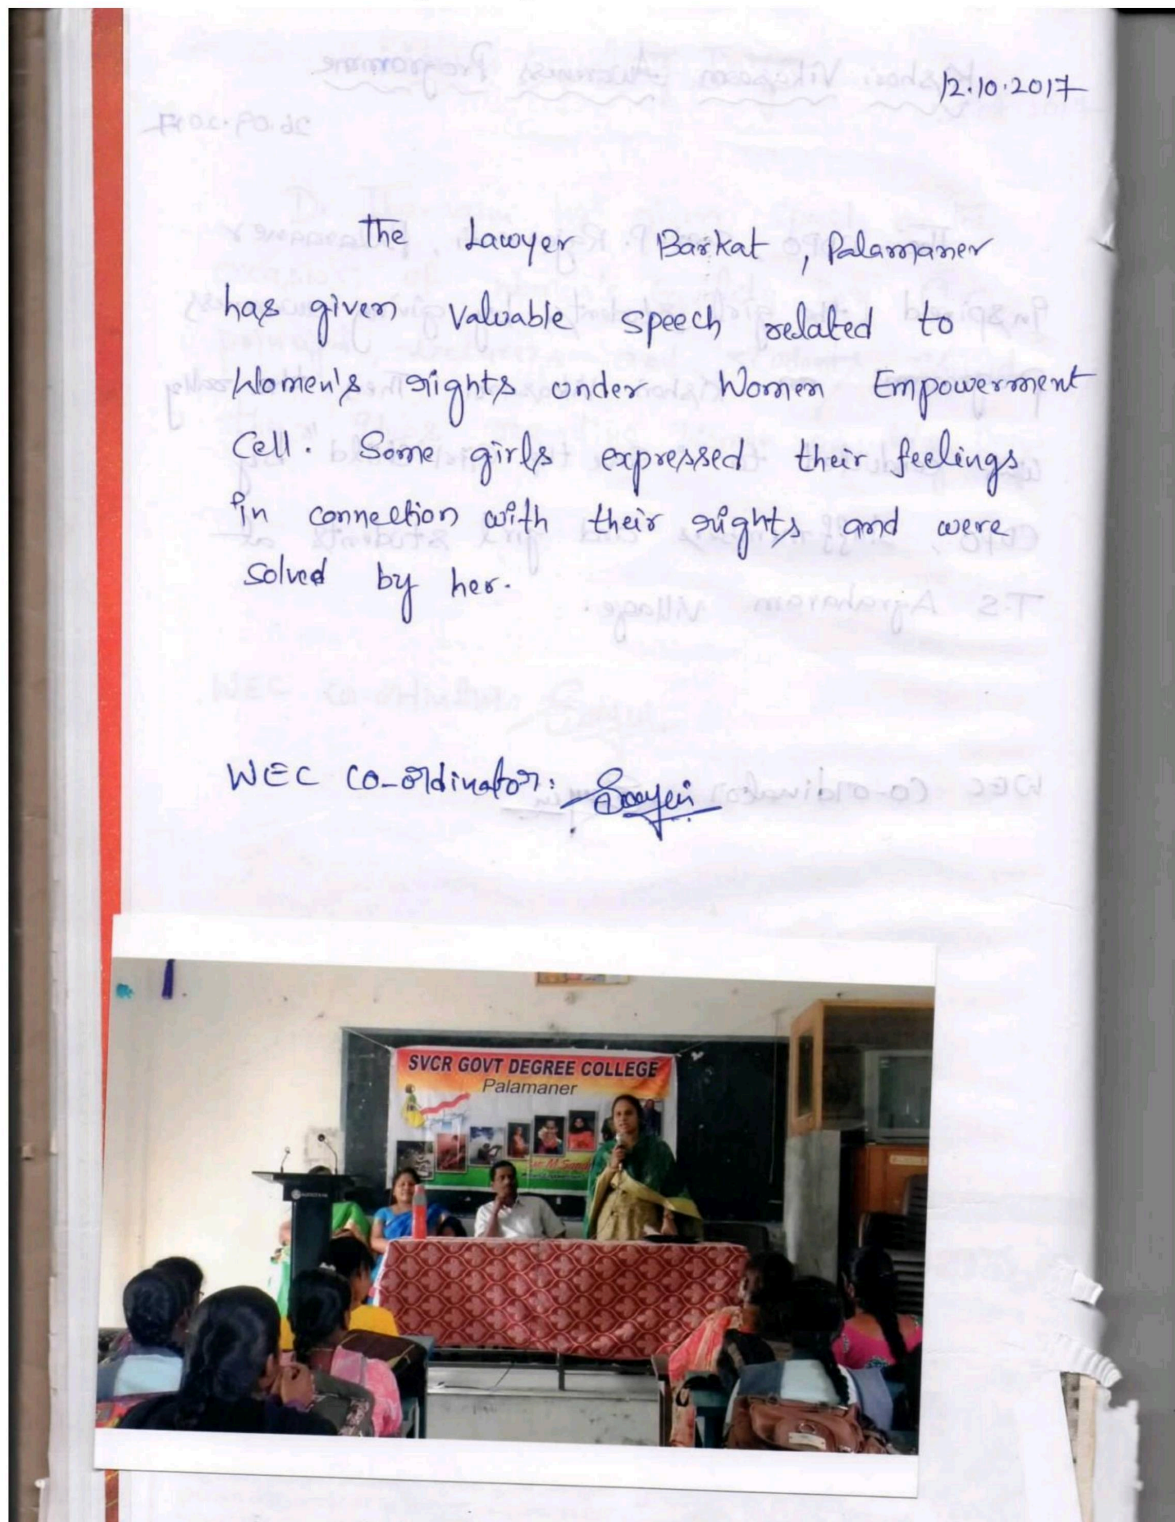 12.10.2017
The Lawyer Barkat, Palamaner
has given valuable speech related to
Women's rights under Women Empowerment
Cell. Some girls expressed their feelings
in connection with their rights and were
solved by her.
WEC Co-ordinator:
SVCR GOVT DEGREE COLLEGE
Palamaner